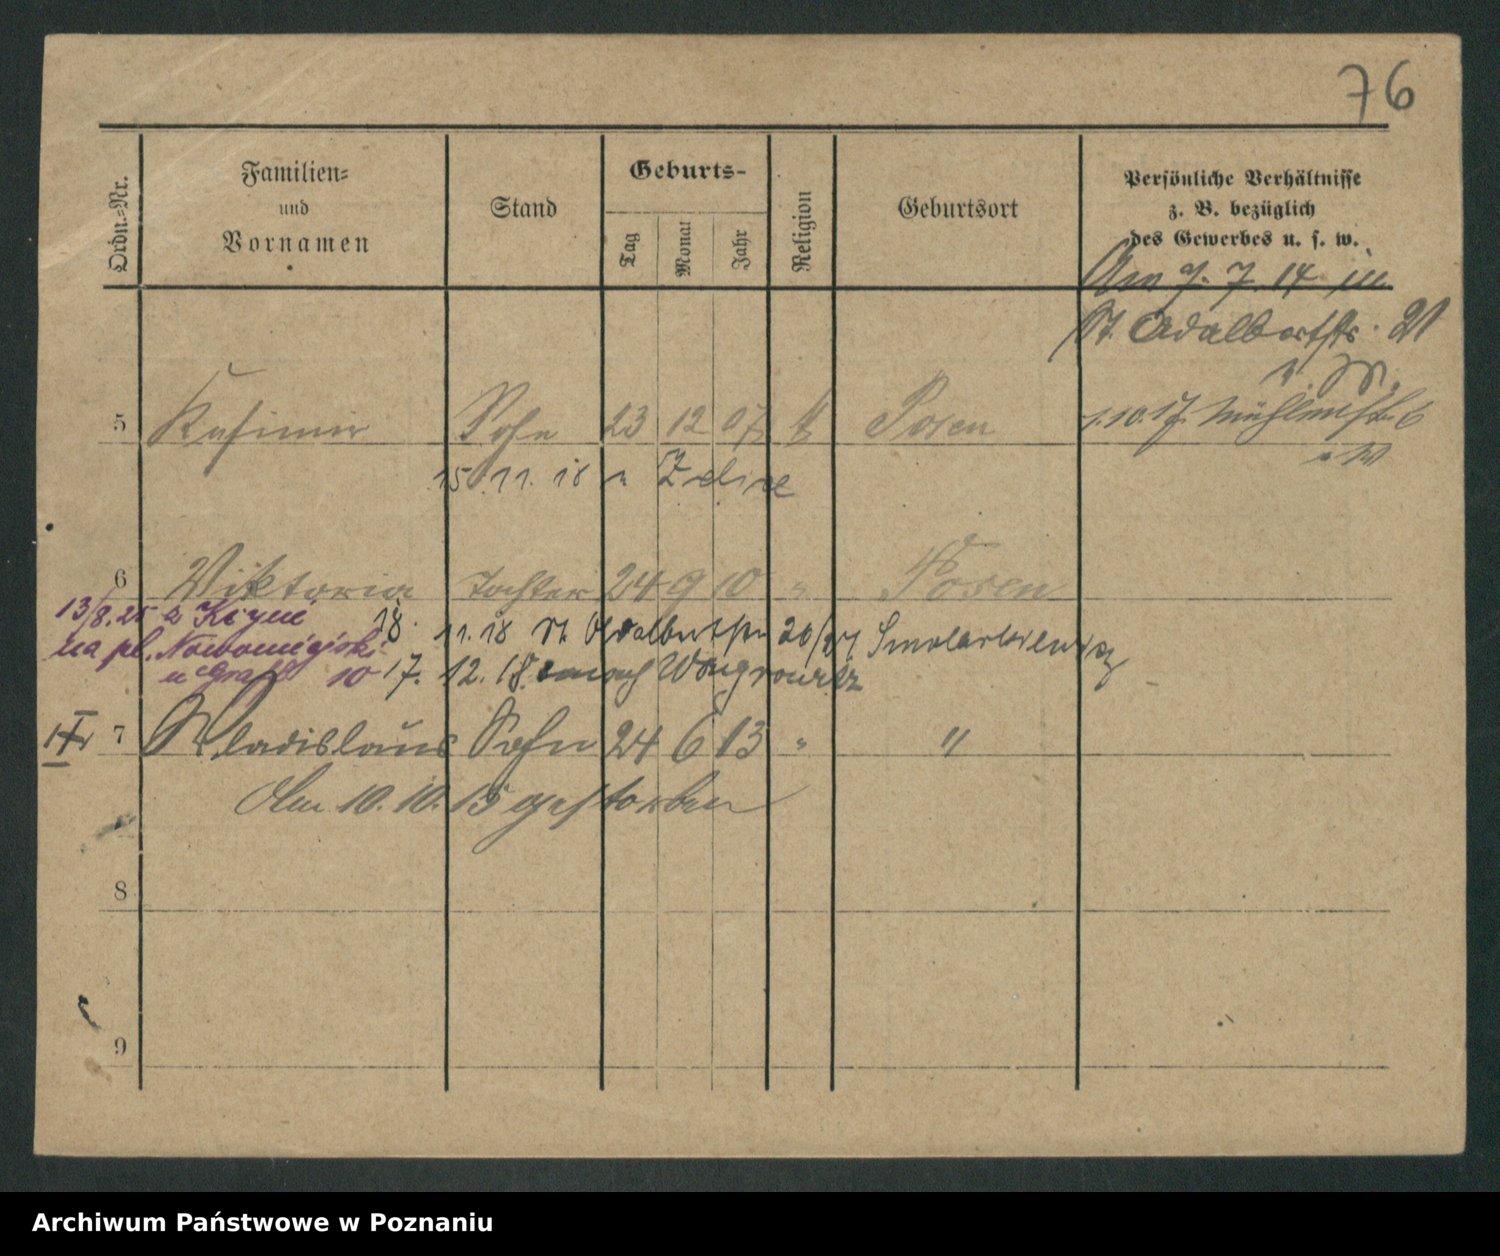 76
Ordn.-Nr.
Familien-
und
Vornamen
Stand
Geburts-
Tag
Monat
Jahr
Religion
Geburtsort
Persönliche Verhältnisse
z. B. bezüglich
des Gewerbes u. s. w.
Am 9. 7. 14 in
St. Adalbertstr. 21
5 Kasimir Sohn 23 12 07 k Posen 1.10.17. Mühlenstr. 6
15. 11. 18 n
6 Viktoria Tochter 24 9 10 " Posen
13/8.25 z Kcyni
18. 11. 18 St. Adalbertstr 26/27
na pl. Nowomiejski
u 10
17. 12. 18. nach Wongrowitz
7 Wladislaus Sohn 24 6 13 " "
Am 10. 10. 15 gestorben
8
9
Archiwum Państwowe w Poznaniu